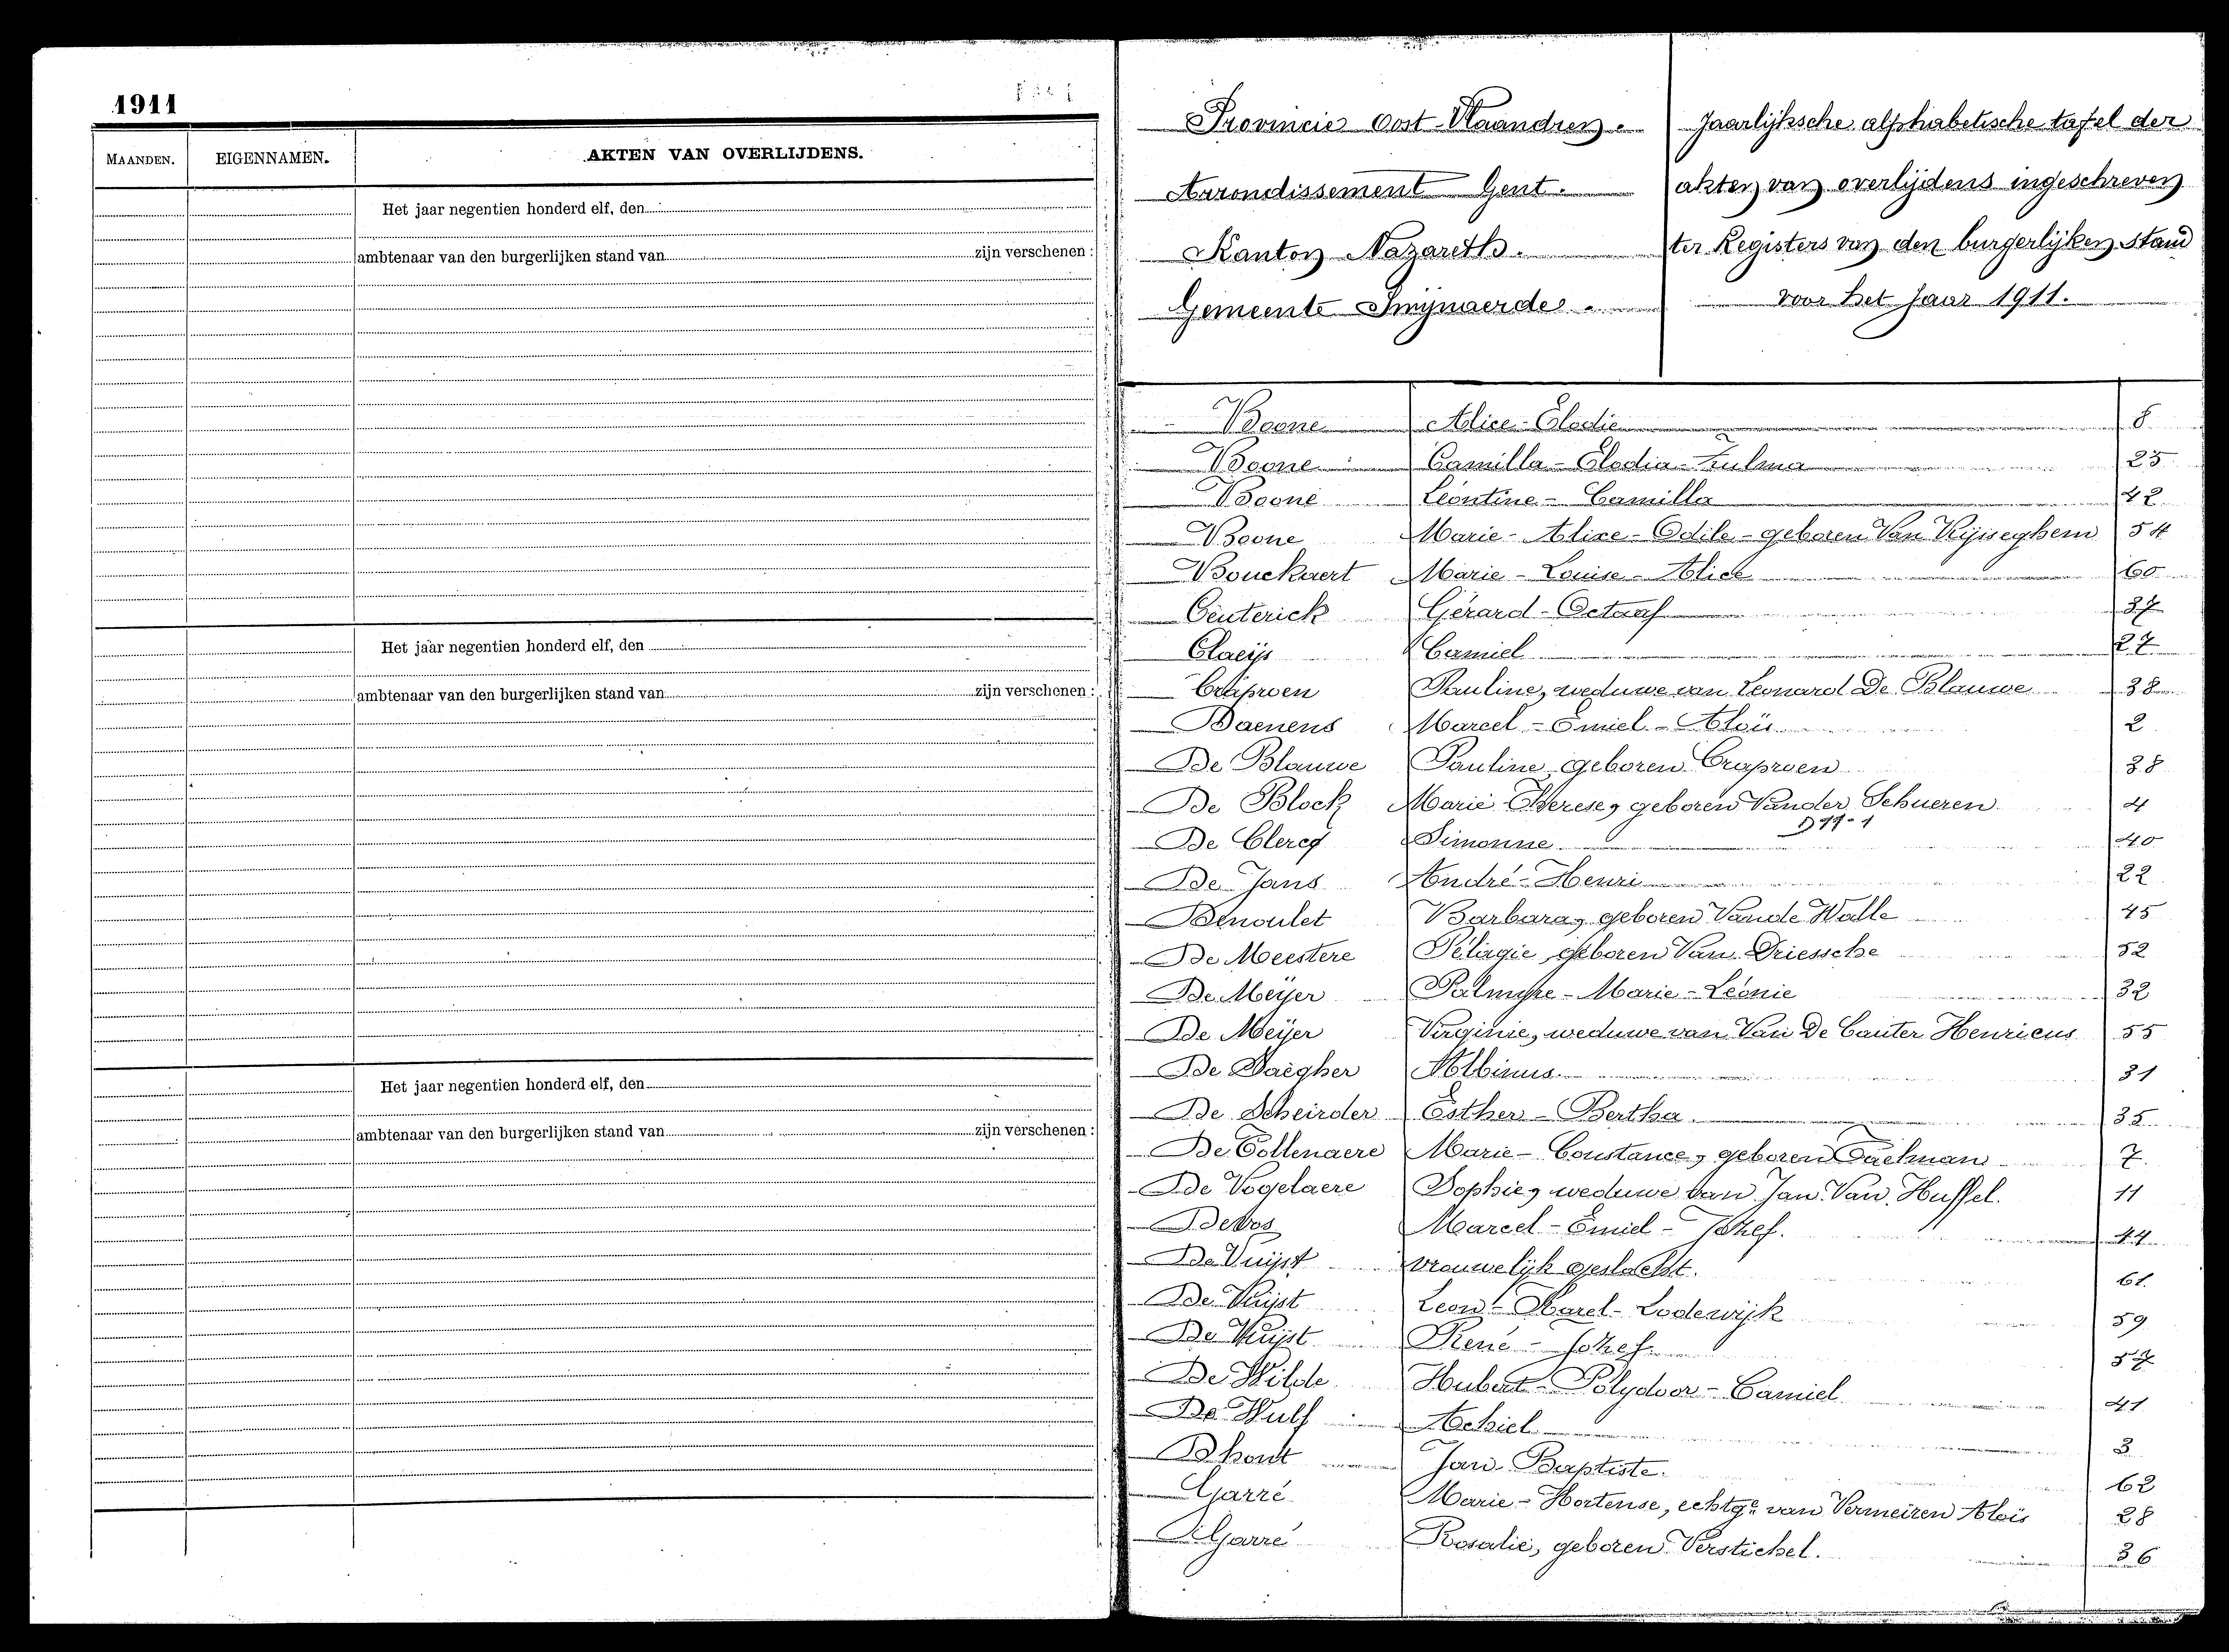 1911
MAANDEN. EIGENNAMEN. AKTEN VAN OVERLIJDENS.
Het jaar negentien honderd elf, den
ambtenaar van den burgerlijken stand van zijn verschenen :
Het jaar negentien honderd elf, den
ambtenaar van den burgerlijken stand van zijn verschenen :
Het jaar negentien honderd elf, den
ambtenaar van den burgerlijken stand van zijn verschenen :
Provincie Oost-Vlaandren.
Arrondissement Gent.
Kanton Nazareth.
Gemeente Swijnaerde.
Jaarlijksche alphabetische tafel der
akten van overlijdens ingeschreven
ter Registers van den burgerlijken stand
voor het Jaar 1911.
Boone Alice-Elodie 8
Boone Camilla-Elodia-Zulma 25
Boone Léontine-Camilla 42
Boone Marie-Alixe-Odile-geboren Van Rijsseghem 54
Bouckaert Marie-Louise-Alice 60
Ceuterick Gérard-Octaaf 37
Claeijs Camiel 27
Craproen Pauline, weduwe van Leonard De Blauwe 38
Daenens Marcel-Emiel-Aloïs 2
De Blauwe Pauline, geboren Craproen 38
De Block Marie Therese, geboren Vander Schueren 4
De Clercq Simonne 40
De Jans André-Henri 22
Denoulet Barbara, geboren Vande Walle 45
De Meestere Pélagie, geboren Van Driessche 52
De Meijer Palmyre-Marie-Léonie 32
De Meijer Virginie, weduwe van Van De Cauter Henricus 55
De Albinus 31
De Scheirder Esther-Bertha 35
De Tollenaere Marie-Constance, geboren Taelman 7
De Vogelaere Sophie, weduwe van Jan Van Huffel. 11
Devos Marcel-Emiel-Jozef. 44
De Vuijst vrouwelijk geslacht. 61
De Vuijst Leon-Karel-Lodewijk 59
De Vuijst René-Jozef 57
De Wilde Hubert-Polydoor-Camiel 41
De Wulf Achiel 3
Dhont Jan Baptiste. 62
Garré Marie-Hortense, echtge van Vermeiren Aloïs 28
Garré Rosalie, geboren Verstichel. 36